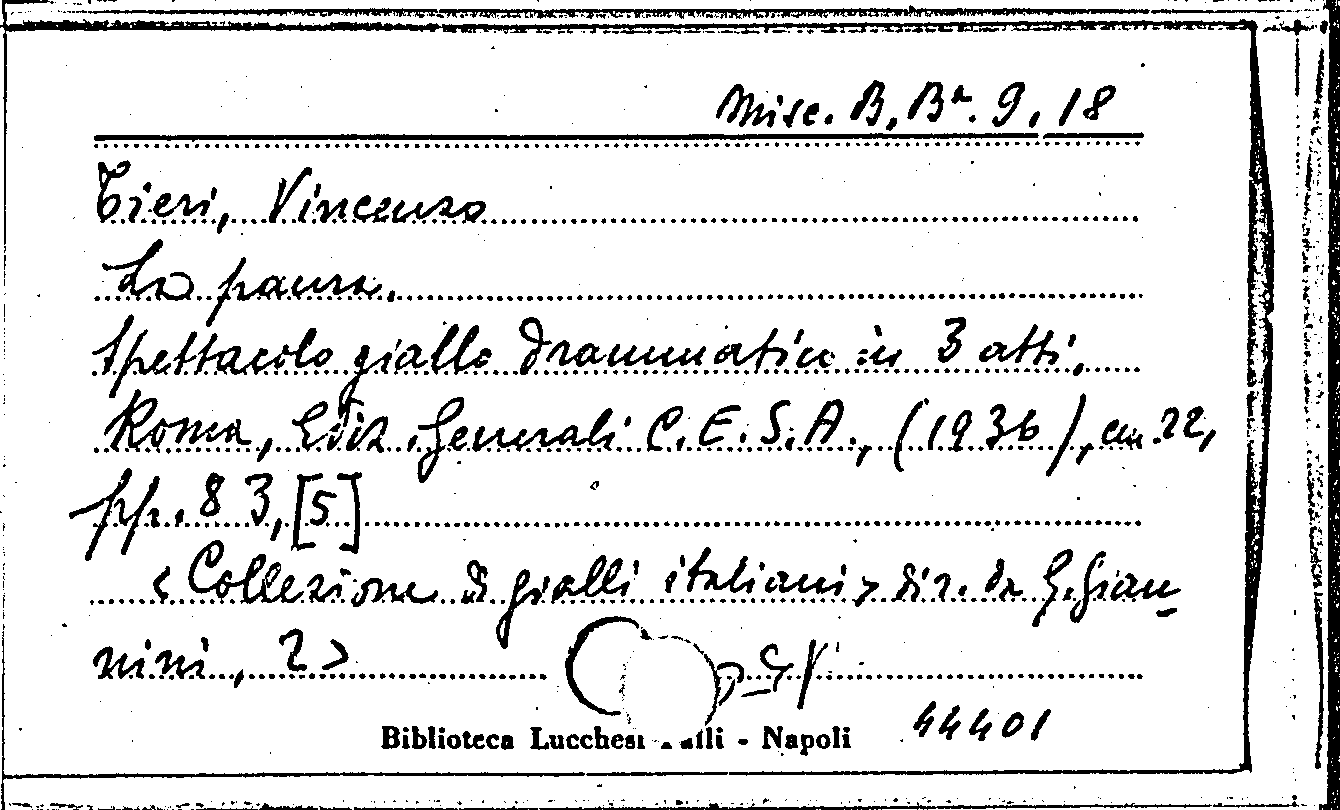 Misc. B, Bª. 9, 18
Tieri, Vincenzo
La paura.
Spettacolo giallo drammatico in 3 atti,
Roma, Ediz. Generali C.E.S.A., (1936), cm. 22,
pp. 83, [5]
< Collezione di gialli italiani > dir. da G. Gian-
nini, 2 >
Biblioteca Lucchesi - Napoli
44401